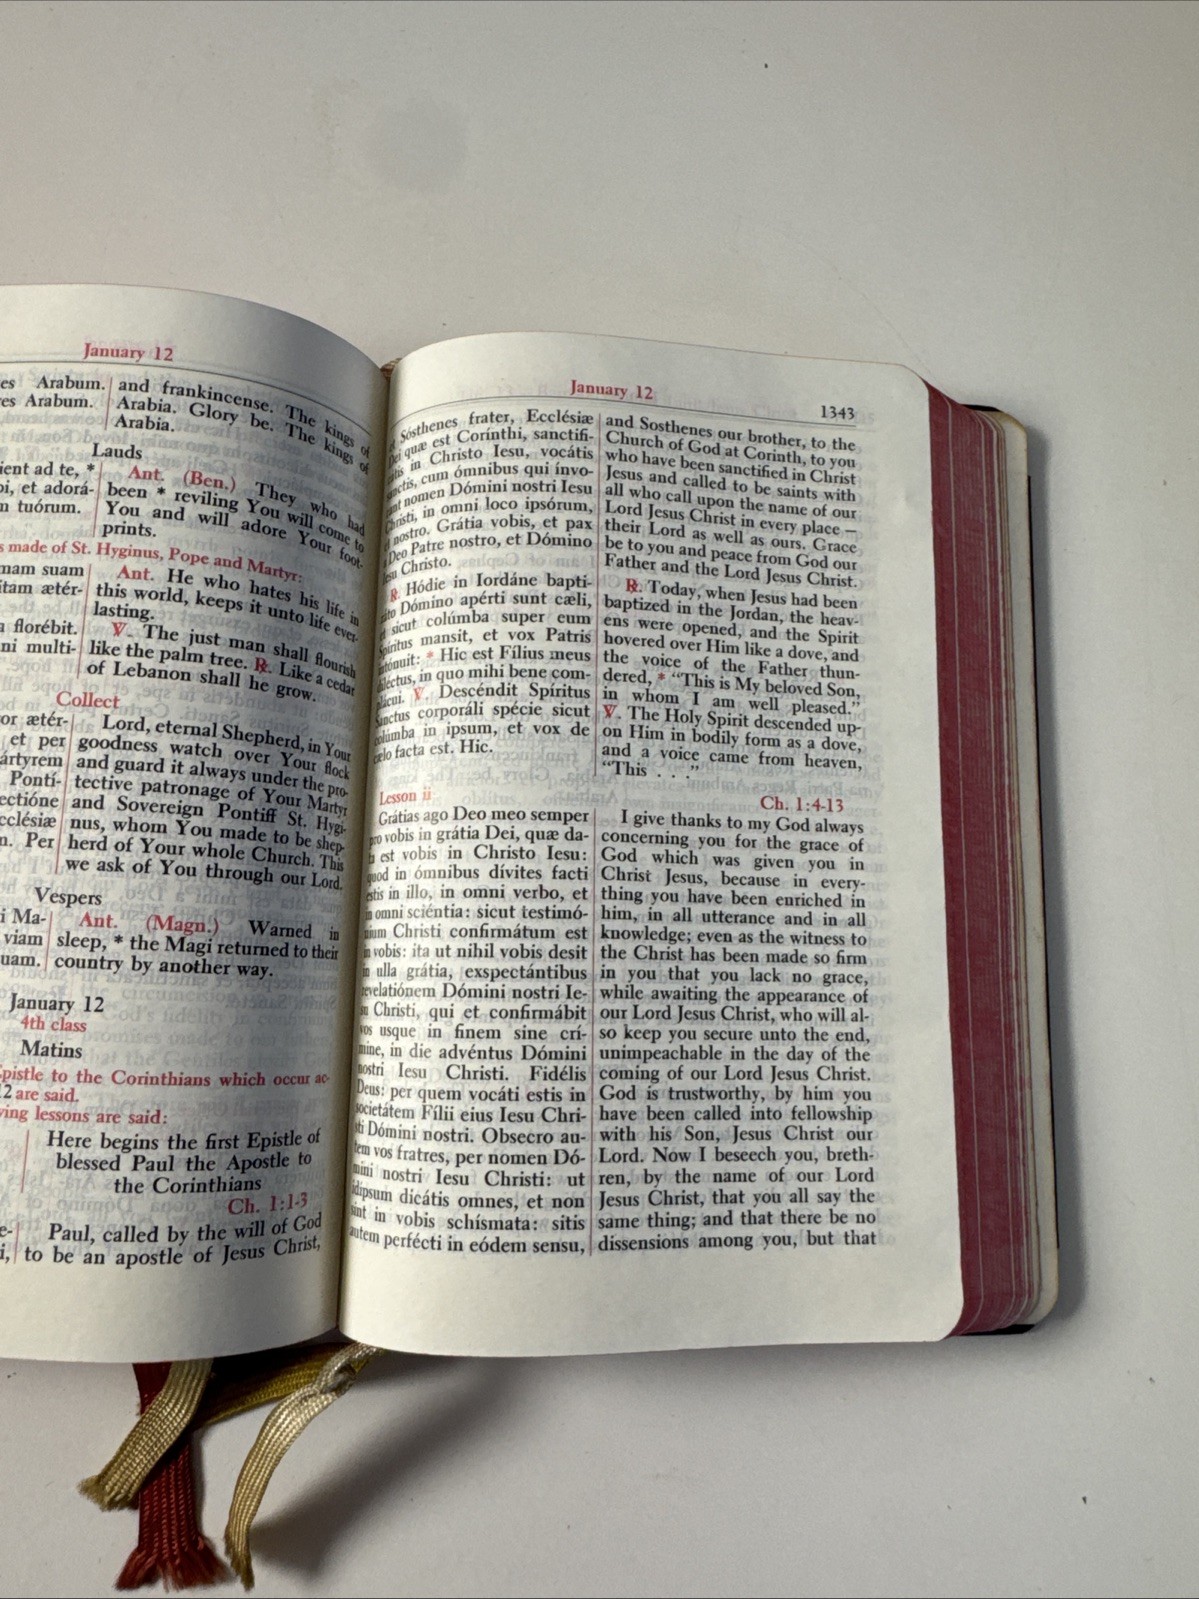 January 12
es Arabum.
es Arabum.
and frankincense. The kings of
Arabia. Glory be. The kings of
Arabia.
Lauds
ient ad te, *
oi, et adorá-
n tuórum.
Ant. (Ben.) They who had
been * reviling You will come to
You and will adore Your foot-
prints.
s made of St. Hyginus, Pope and Martyr:
mam suam
itam ætér-
Ant. He who hates his life in
this world, keeps it unto life ever-
lasting.
a florébit.
ni multi-
℣. The just man shall flourish
like the palm tree. ℟. Like a cedar
of Lebanon shall he grow.
Collect
or ætér-
et per
ártyrem
Pontí-
ectióne
cclésiæ
n. Per
Lord, eternal Shepherd, in Your
goodness watch over Your flock
and guard it always under the pro-
tective patronage of Your Martyr
and Sovereign Pontiff St. Hygi-
nus, whom You made to be shep-
herd of Your whole Church. This
we ask of You through our Lord.
Vespers
i Ma-
viam
uam.
Ant. (Magn.) Warned in
sleep, * the Magi returned to their
country by another way.
January 12
4th class
Matins
Epistle to the Corinthians which occur ac-
12 are said.
ving lessons are said:
Here begins the first Epistle of
blessed Paul the Apostle to
the Corinthians
Ch. 1:1-3
e-
i,
Paul, called by the will of God
to be an apostle of Jesus Christ,
January 12
1343
et Sósthenes frater, Ecclésiæ
Dei quæ est Corínthi, sanctifi-
átis in Christo Iesu, vocátis
sanctis, cum ómnibus qui ínvo-
cant nomen Dómini nostri Iesu
Christi, in omni loco ipsórum,
et nostro. Grátia vobis, et pax
a Deo Patre nostro, et Dómino
Iesu Christo.
℟. Hódie in Iordáne bapti-
záto Dómino apérti sunt cæli,
et sicut colúmba super eum
Spíritus mansit, et vox Patris
intónuit: * Hic est Fílius meus
diléctus, in quo mihi bene com-
plácui. ℣. Descéndit Spíritus
Sanctus corporáli spécie sicut
colúmba in ipsum, et vox de
cælo facta est. Hic.
Lesson ii
Grátias ago Deo meo semper
pro vobis in grátia Dei, quæ da-
ta est vobis in Christo Iesu:
quod in ómnibus dívites facti
estis in illo, in omni verbo, et
in omni sciéntia: sicut testimó-
nium Christi confirmátum est
in vobis: ita ut nihil vobis desit
in ulla grátia, exspectántibus
revelatiónem Dómini nostri Ie-
su Christi, qui et confirmábit
vos usque in finem sine crí-
mine, in die advéntus Dómini
nostri Iesu Christi. Fidélis
Deus: per quem vocáti estis in
societátem Fílii eius Iesu Chri-
sti Dómini nostri. Obsecro au-
tem vos fratres, per nomen Dó-
mini nostri Iesu Christi: ut
idípsum dicátis omnes, et non
sint in vobis schísmata: sitis
autem perfécti in eódem sensu,
and Sosthenes our brother, to the
Church of God at Corinth, to you
who have been sanctified in Christ
Jesus and called to be saints with
all who call upon the name of our
Lord Jesus Christ in every place —
their Lord as well as ours. Grace
be to you and peace from God our
Father and the Lord Jesus Christ.
℟. Today, when Jesus had been
baptized in the Jordan, the heav-
ens were opened, and the Spirit
hovered over Him like a dove, and
the voice of the Father thun-
dered, * “This is My beloved Son,
in whom I am well pleased.”
℣. The Holy Spirit descended up-
on Him in bodily form as a dove,
and a voice came from heaven,
“This . . .”
Ch. 1:4-13
I give thanks to my God always
concerning you for the grace of
God which was given you in
Christ Jesus, because in every-
thing you have been enriched in
him, in all utterance and in all
knowledge; even as the witness to
the Christ has been made so firm
in you that you lack no grace,
while awaiting the appearance of
our Lord Jesus Christ, who will al-
so keep you secure unto the end,
unimpeachable in the day of the
coming of our Lord Jesus Christ.
God is trustworthy, by him you
have been called into fellowship
with his Son, Jesus Christ our
Lord. Now I beseech you, breth-
ren, by the name of our Lord
Jesus Christ, that you all say the
same thing; and that there be no
dissensions among you, but that